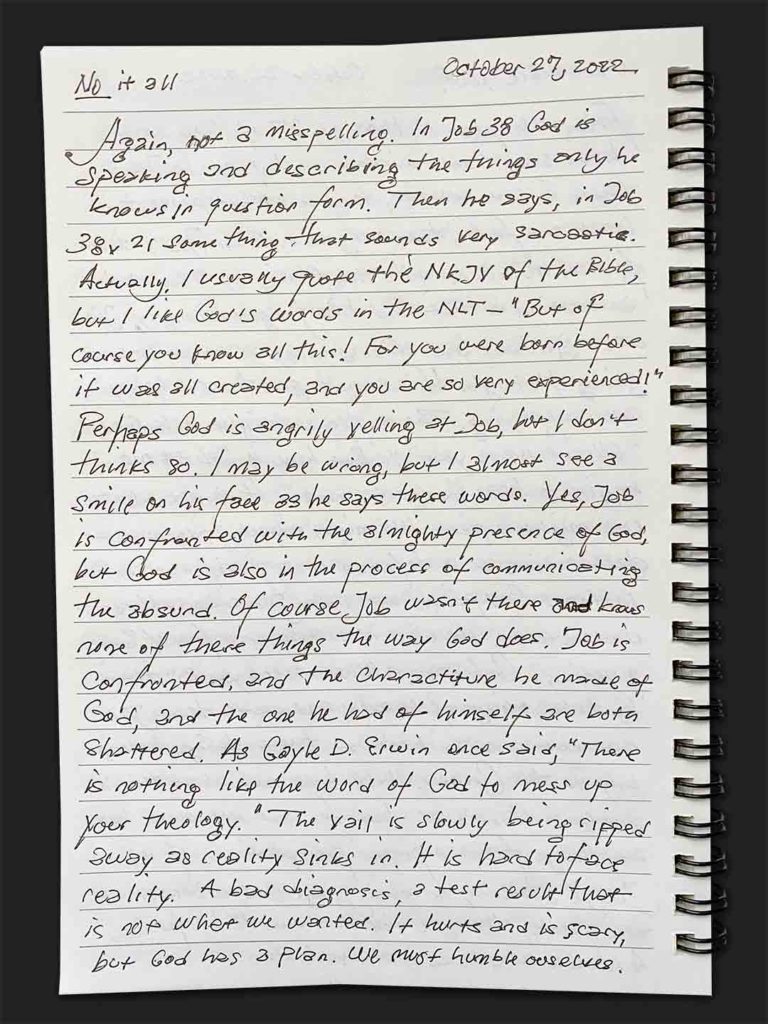 October 27, 2022
No it all
Again, not a misspelling. In Job 38 God is
speaking and describing the things only he
knows in question form. Then he says, in Job
38v21 something that sounds very sarcastic.
Actually, I usually quote the NKJV of the Bible,
but I like God's words in the NLT - "But of
course you know all this! For you were born before
it was all created, and you are so very experienced!"
Perhaps God is angrily yelling at Job, but I don't
thinks so. I may be wrong, but I almost see a
smile on his face as he says these words. Yes, Job
is confronted with the almighty presence of God,
but God is also in the process of communicating
the absurd. Of course Job wasn't there and knows
none of there things the way God does. Job is
confronted, and the charactiture he made of
God, and the one he had of himself are both
shattered. As Gayle D. Erwin once said, "There
is nothing like the word of God to mess up
your theology." The vail is slowly being ripped
away as reality sinks in. It is hard to face
reality. A bad diagnosis, a test result that
is not what we wanted. It hurts and is scary,
but God has a plan. We must humble ourselves.